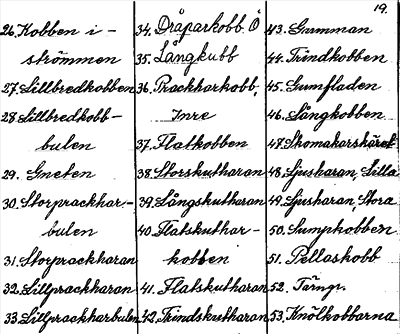 19.
26. Kobben i -
strömmen
27. Lillbredkobben
28. Lillbredkobb -
bulen
29. Gneten
30. Storprackhar. -
bulen
31. Storprackharan
32. Lillprackharan
33. Lillprackharbulen
34. Dråparkobb. Ö
35. Långkubb
36. Prackharkobb,
Inre
37. Flatkobben
38. Storskutharan
39. Långskutharan
40. Flatskuthar -
kobben
41. Flatskutharan
42. Trindskutharan
43. Gumman
44. Trindkobben
45. Gumfladen
46. Långkobben
47. Skomakarskäret
48. Ljusharan, Lilla
49. Ljusharan, Stora
50. Sumphobben
51. Pellaskobb
52. Tärngr.
53. Knölkobbarna